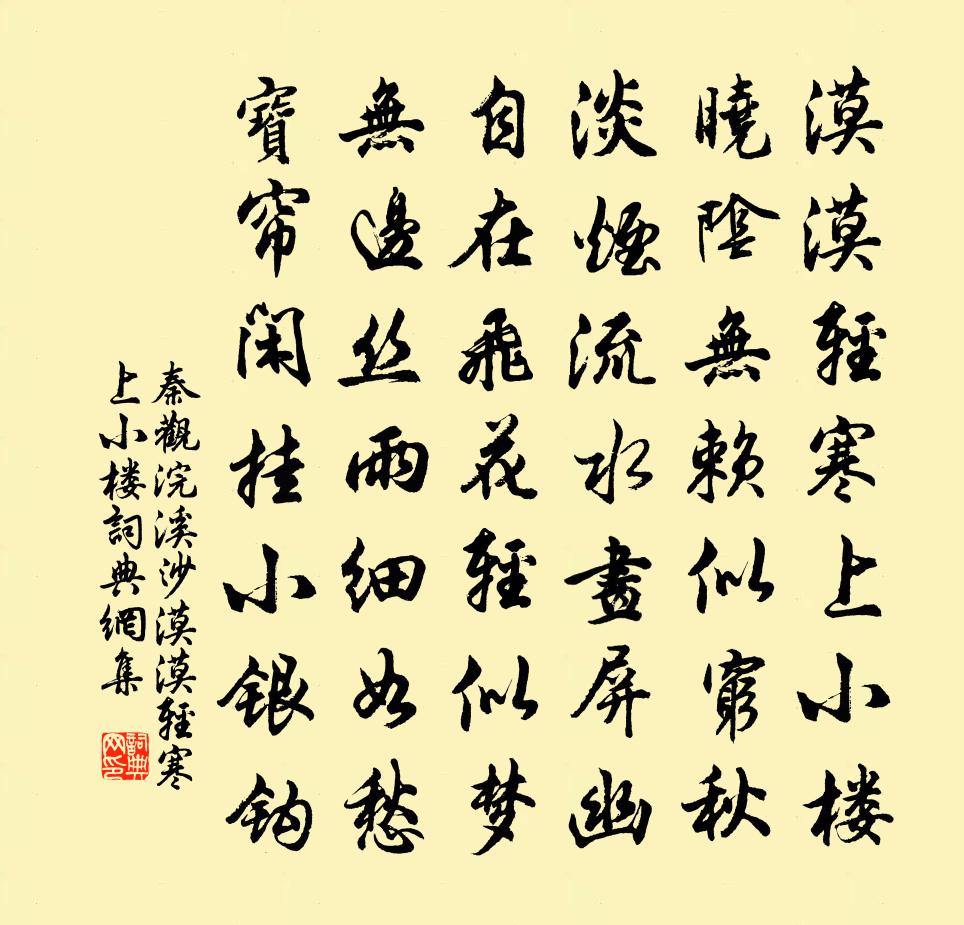 漠漠輕寒上小楼
曉陰無赖似窮秋
淡煙流水畫屏幽
自在飛花輕似梦
無邊丝雨細如愁
寶帘闲挂小銀钩
秦觀浣溪沙漠漠輕寒
上小楼詞典網集
詞典网印